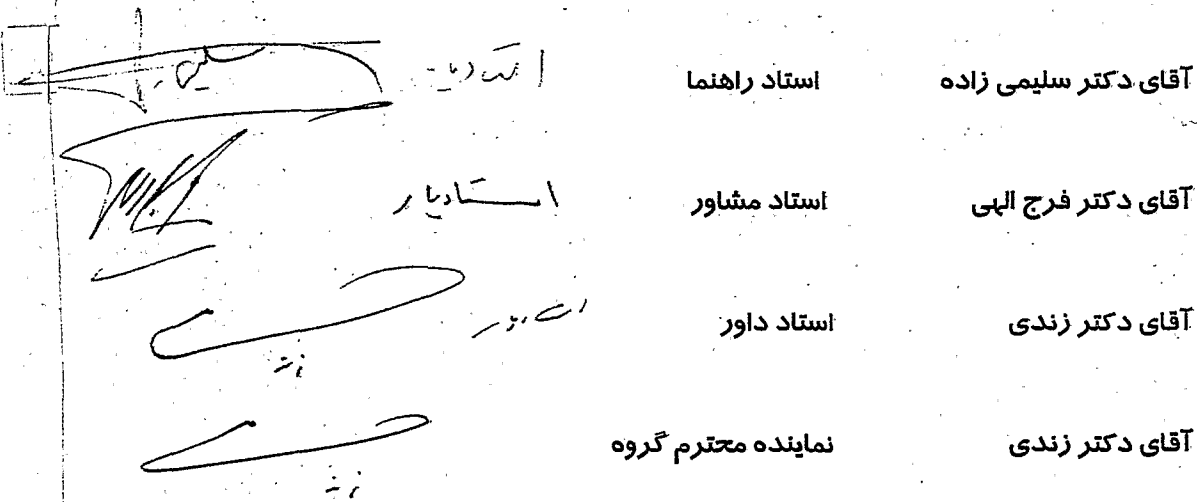 آقای دکتر سلیمی زاده استاد راهنما استادیار
آقای دکتر فرج الهی استاد مشاور استادیار
آقای دکتر زندی استاد داور استادیار
آقای دکتر زندی نماینده محترم گروه